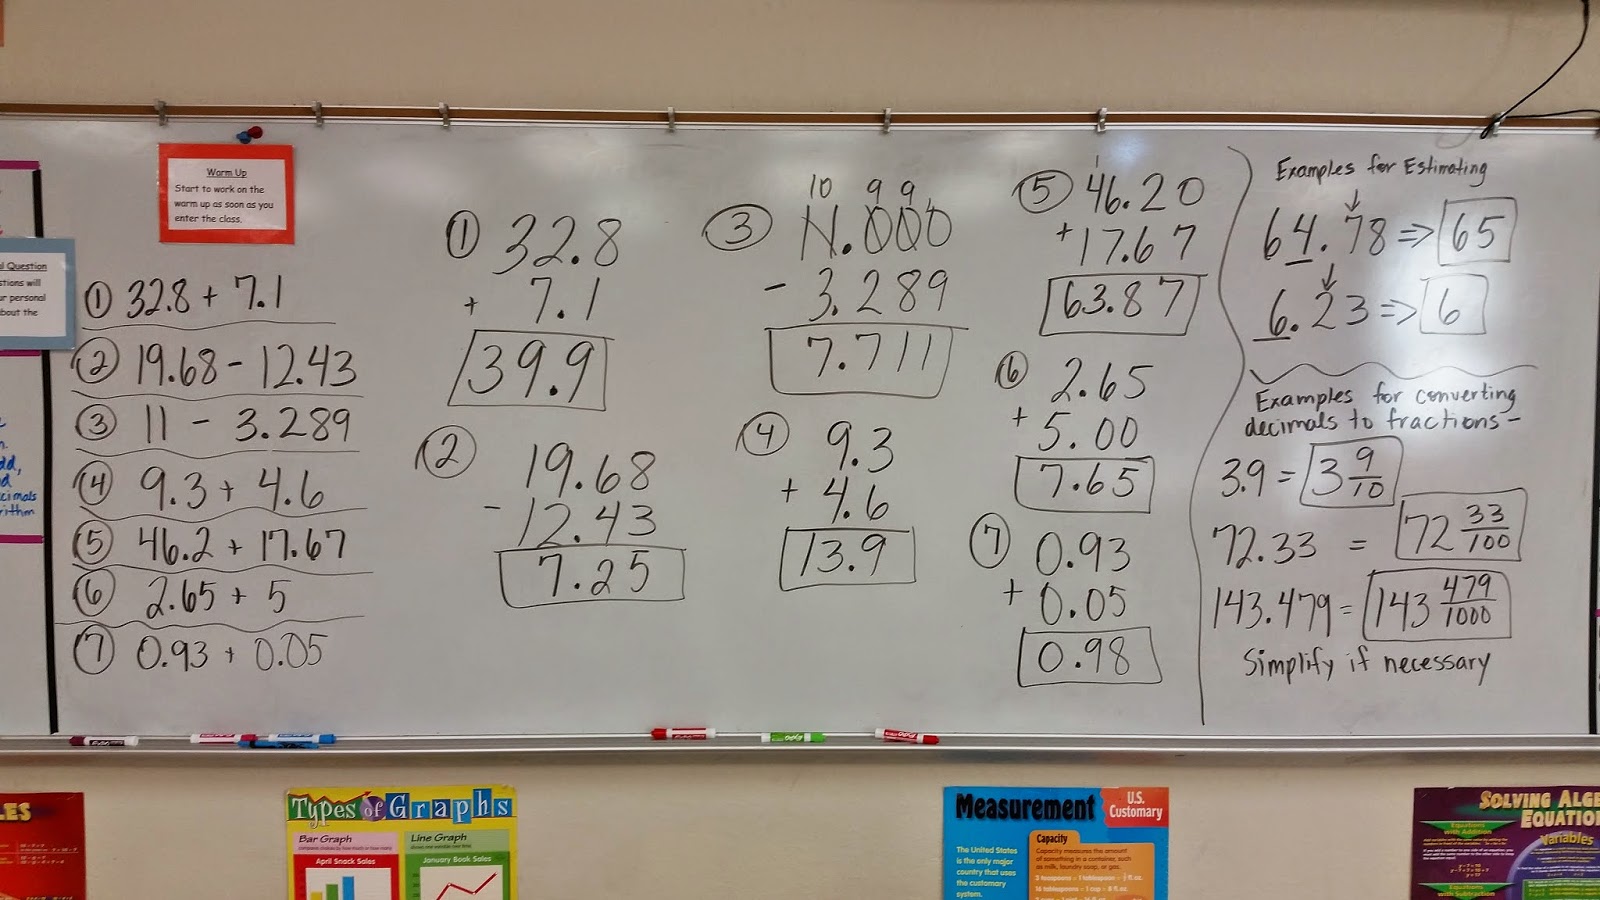 Warm Up
Start to work on the
warm up as soon as you
enter the class.
l Question
stions will
ur personal
bout the
① 32.8 + 7.1
② 19.68 - 12.43
③ 11 - 3.289
④ 9.3 + 4.6
⑤ 46.2 + 17.67
⑥ 2.65 + 5
⑦ 0.93 + 0.05
① 32.8
+ 7.1
39.9
② 19.68
- 12.43
7.25
10 9 9
③ 11.000
- 3.289
7.711
④ 9.3
+ 4.6
13.9
1
⑤ 46.20
+ 17.67
63.87
⑥ 2.65
+ 5.00
7.65
⑦ 0.93
+ 0.05
0.98
Examples for Estimating
64.78 => 65
6.23 => 6
Examples for converting
decimals to fractions-
3.9 = 3 9/10
72.33 = 72 33/100
143.479 = 143 479/1000
Simplify if necessary
dd,
cimals
rithm
LES
Types of Graphs
Bar Graph
April Snack Sales
Line Graph
January Book Sales
Measurement
U.S.
Customary
The United States
is the only major
country that uses
the customary
system.
Capacity
Capacity measures the amount
of something in a container, such
as milk, laundry soap, or gas.
3 teaspoons = 1 tablespoon = ½ fl. oz.
16 tablespoons = 1 cup = 8 fl. oz.
SOLVING ALGE
EQUATION
Equations
with Addition
Variables
Equations
with Subtraction